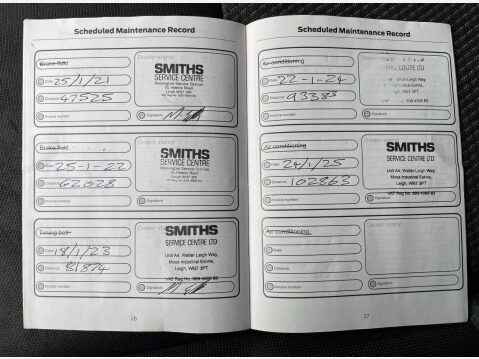 Scheduled Maintenance Record
Brake fluid
Dealer stamp
Date: 25/1/21
SMITHS
SERVICE CENTRE
Pennington Service Station
St Helens Road
Distance: 47525
Invoice number:
Signature:
Brake fluid
Dealer stamp
Date: 25-1-22
SMITHS
SERVICE CENTRE
Pennington Service Station
St Helens Road
Distance: 62028
Invoice number:
Signature:
Timing belt
Dealer stamp
Date: 18/1/23
SMITHS
SERVICE CENTRE LTD
Unit A4, Walter Leigh Way,
Moss Industrial Estate,
Leigh, WN7 3PT
Distance: 81874
Invoice number:
Signature:
26
Scheduled Maintenance Record
Air conditioning
Dealer stamp
Date: 22-1-24
CENTRE LTD
Unit A4, Walter Leigh Way,
Moss Industrial Estate,
Leigh, WN7 3PT
Distance: 93385
Invoice number:
Signature:
Air conditioning
Dealer stamp
Date: 24/1/25
SMITHS
SERVICE CENTRE LTD
Unit A4, Walter Leigh Way,
Moss Industrial Estate,
Leigh, WN7 3PT
Distance: 102863
Invoice number:
Signature:
Air conditioning
Dealer stamp
Date:
Distance:
Invoice number:
Signature:
27